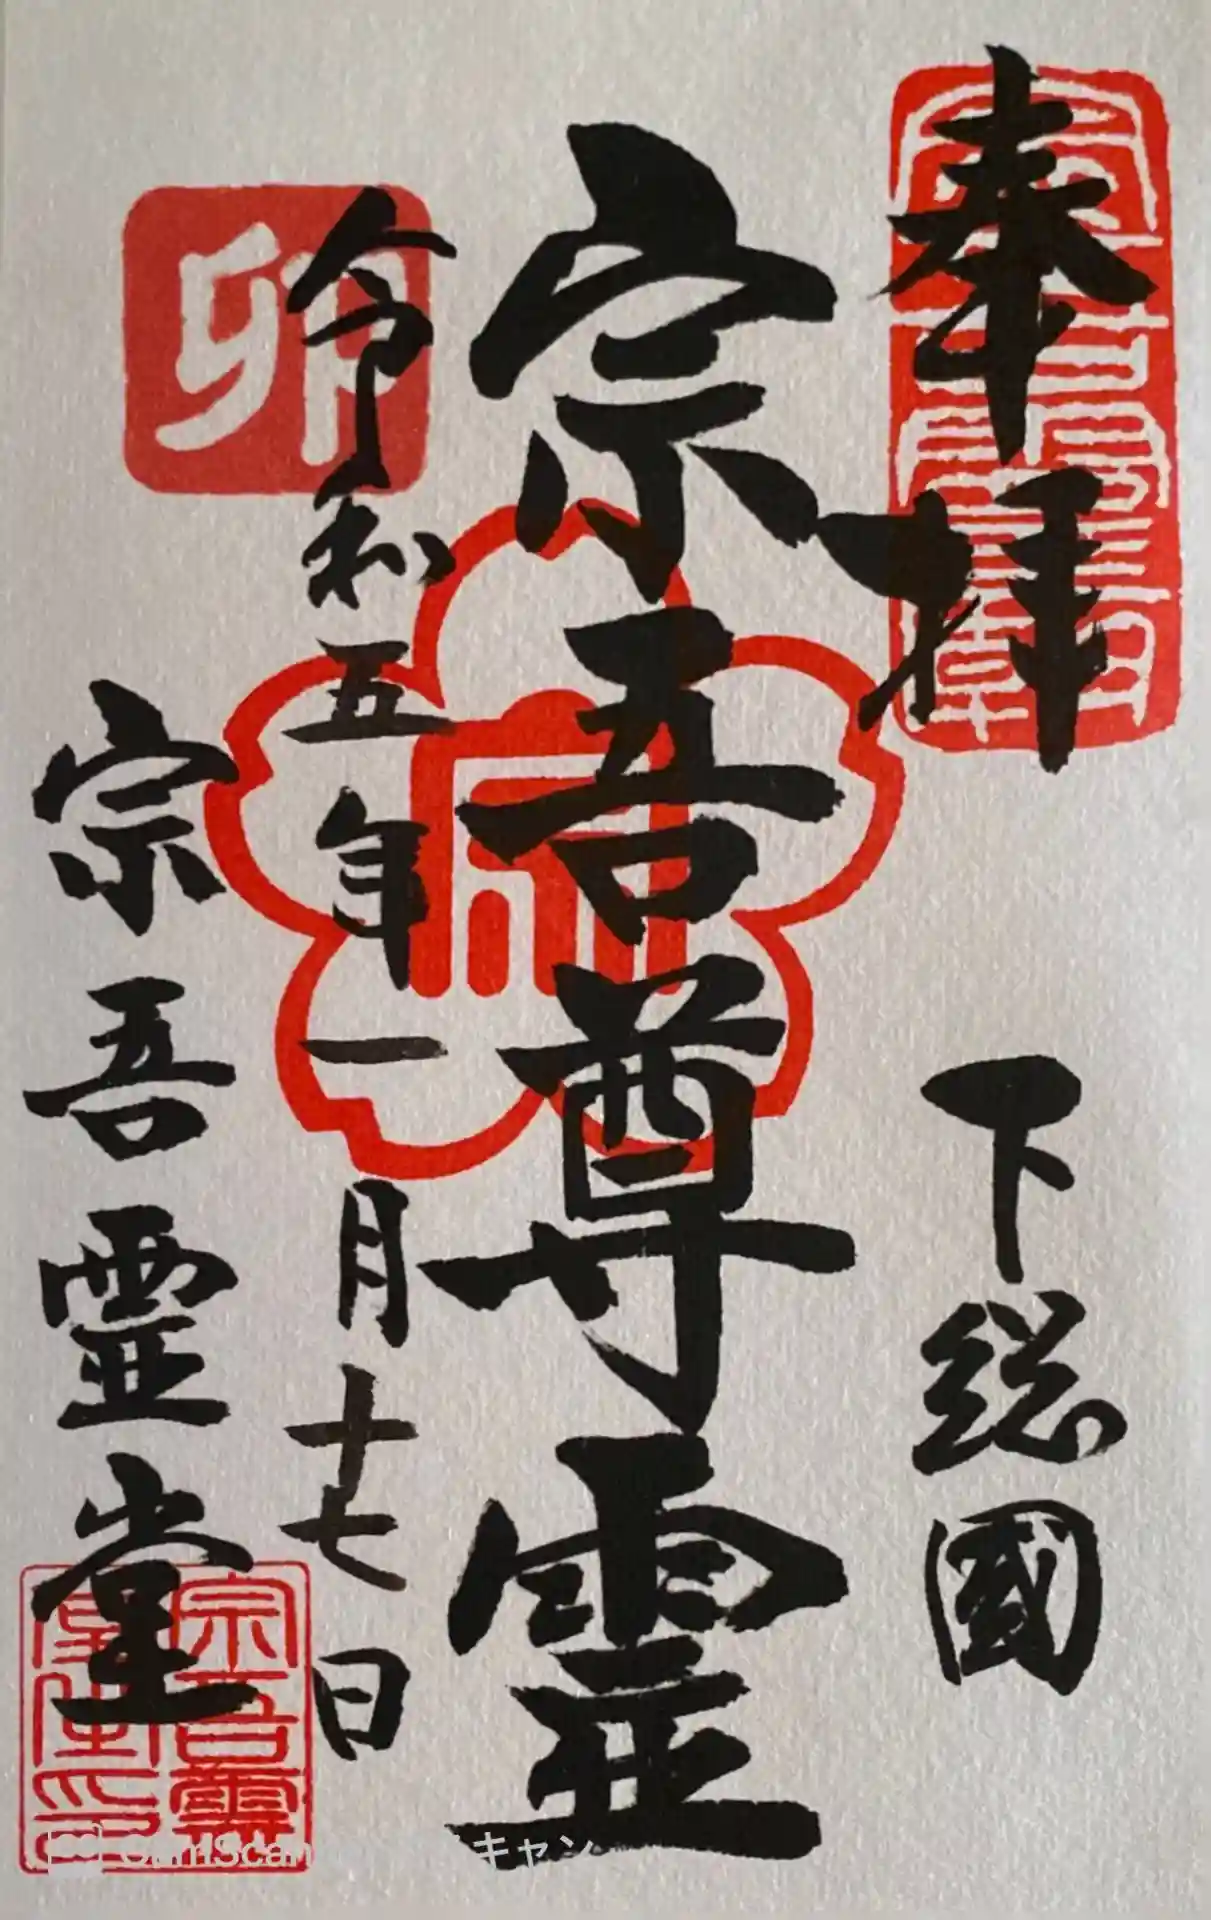 奉拝
下総國
宗吾尊霊
令和五年一月十七日
宗吾霊堂
卯
宗吾靈
堂生印
CamScan
キャン